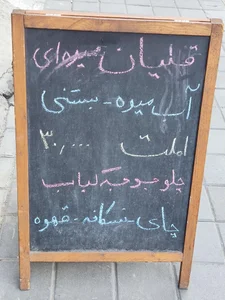 قلیان میوه‌ای
آب میوه - بستنی
املت ۳۰,۰۰۰
چلو جوجه کباب
چای - نسکافه - قهوه